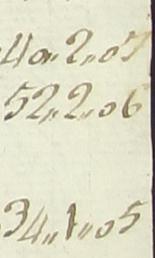 40〃2〃07
52〃2〃06
34〃1〃05